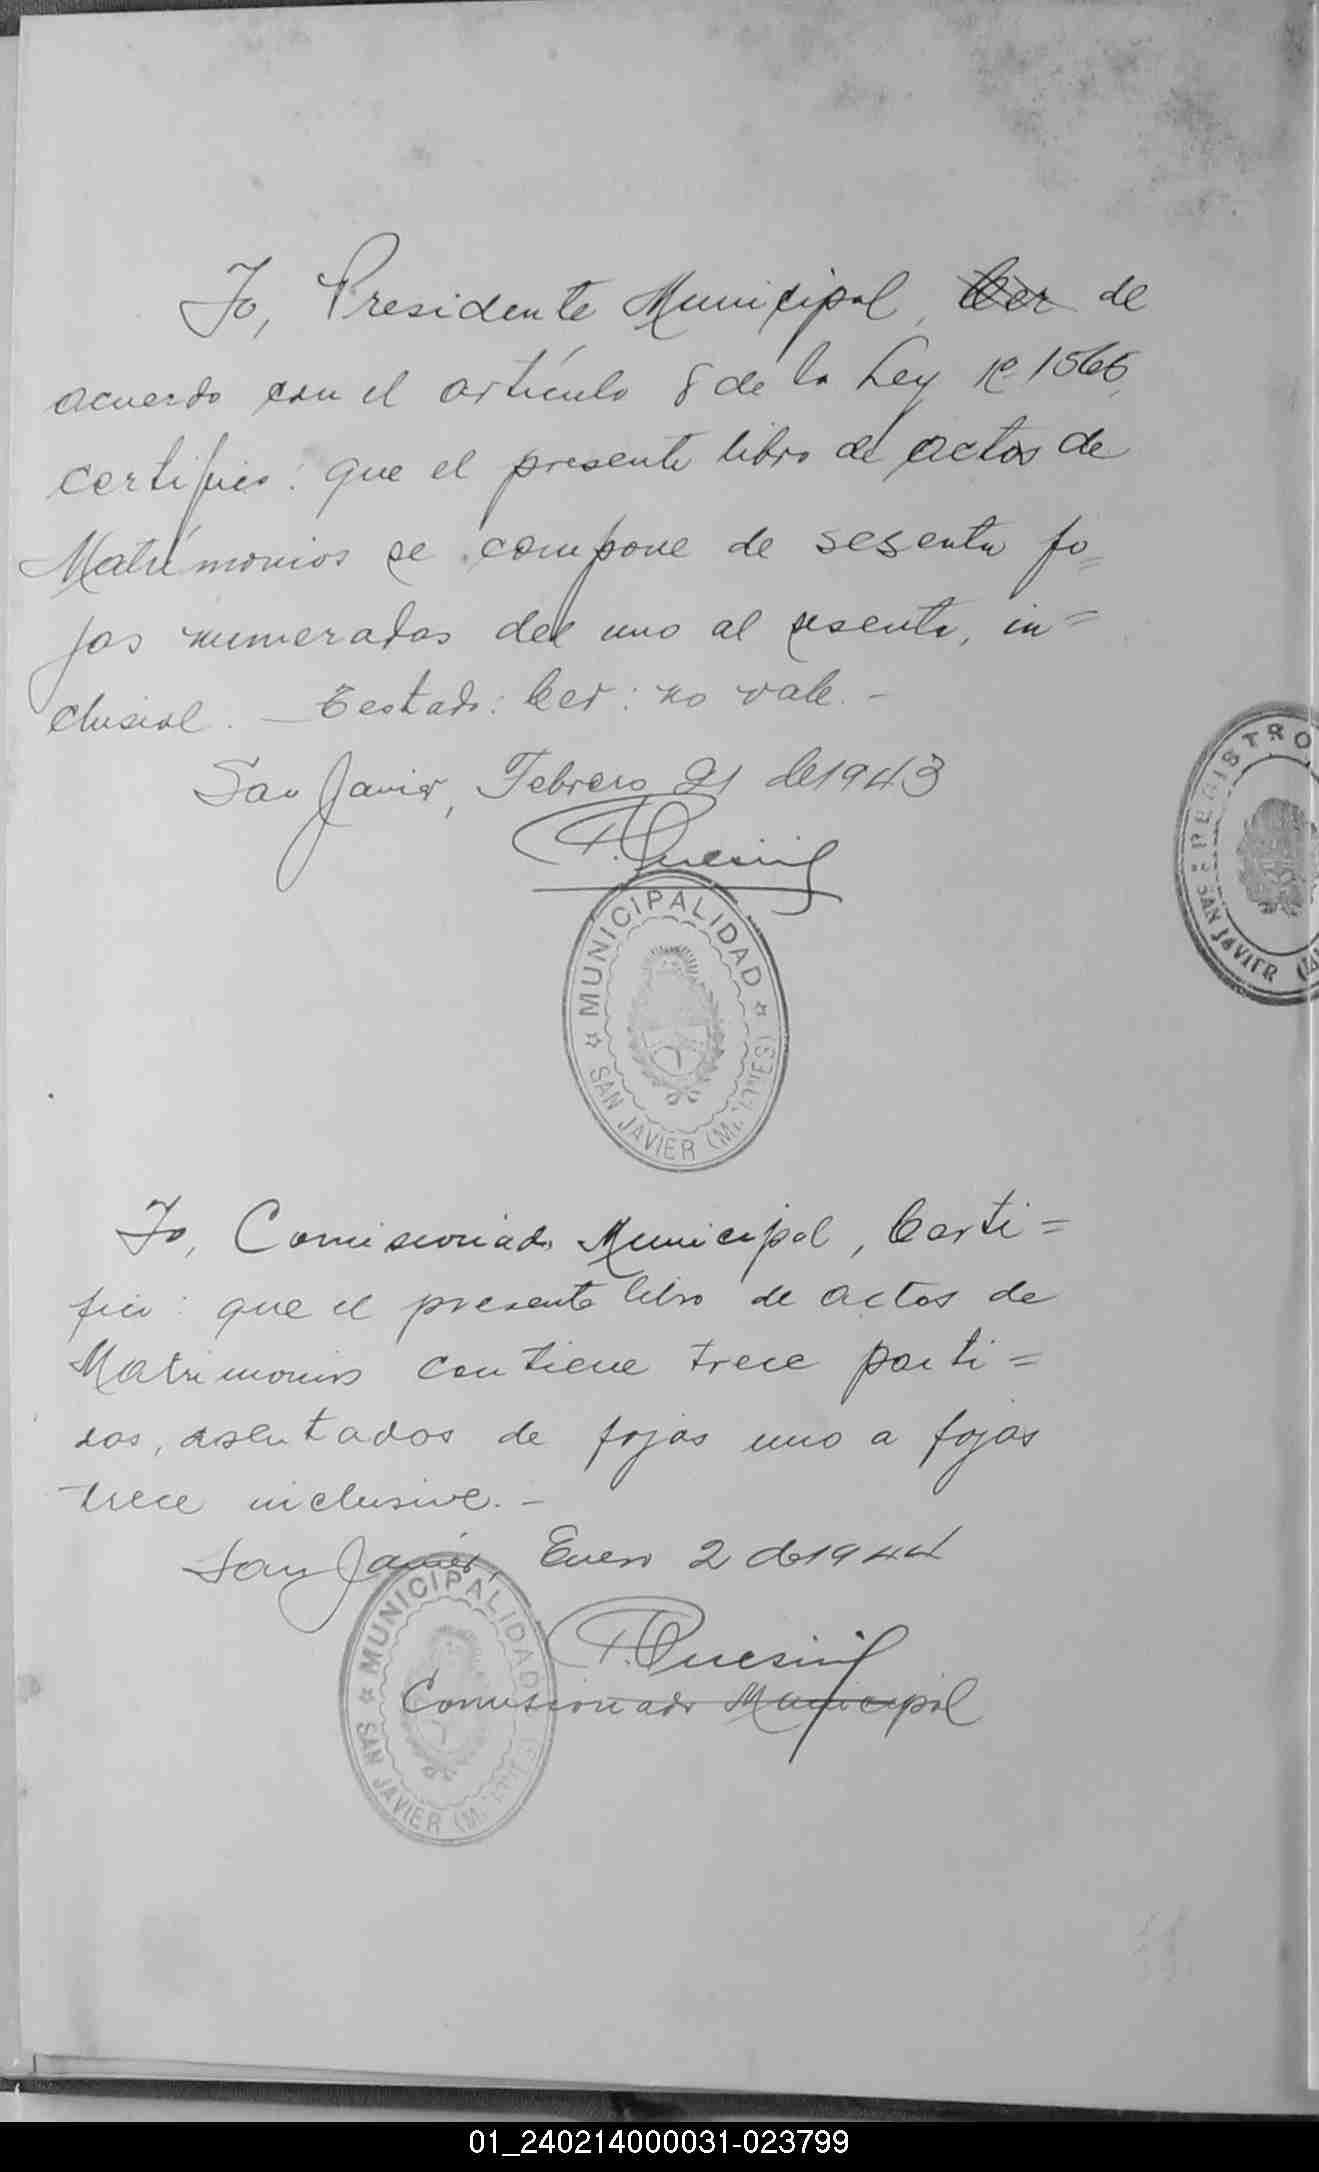 Yo, Presidente Municipal, Cer de
acuerdo con el artículo 8 de la Ley Nº 1565,
certifico: que el presente libro de actas de
Matrimonios se compone de sesenta fo=
jas numeradas del uno al sesenta, in=
clusive. — Testado: Cer: no vale. -
San Javier, Febrero 21 de 1943
MUNICIPALIDAD
SAN JAVIER (MISIONES)
REGISTRO
SAN JAVIER
Yo, Comisionado Municipal, Certi=
fico: que el presente libro de actas de
Matrimonios contiene trece parti=
das, asentados de fojas uno a fojas
trece inclusive. -
San Javier, Enero 2 de 1944
Comisionado Municipal
MUNICIPALIDAD
SAN JAVIER (MISIONES)
01_240214000031-023799